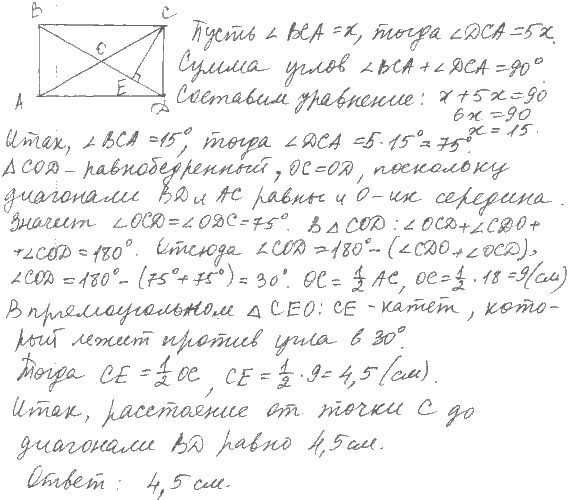 B C
O
A E D
Пусть ∠BCA = x, тогда ∠DCA = 5x.
Сумма углов ∠BCA + ∠DCA = 90°
Составим уравнение: x + 5x = 90
6x = 90
x = 15.
Итак, ∠BCA = 15°, тогда ∠DCA = 5·15° = 75°
△COD - равнобедренный, OC = OD, поскольку
диагонали BD и AC равны и O - их середина.
Значит ∠OCD = ∠ODC = 75°. В △COD: ∠OCD + ∠CDO +
+ ∠COD = 180°. Отсюда ∠COD = 180° - (∠CDO + ∠OCD),
∠COD = 180° - (75° + 75°) = 30°. OC = 1/2 AC, OC = 1/2 · 18 = 9 (см)
В прямоугольном △CEO: CE - катет, кото-
рый лежит против угла в 30°.
Тогда CE = 1/2 OC, CE = 1/2 · 9 = 4,5 (см).
Итак, расстояние от точки C до
диагонали BD равно 4,5 см.
Ответ: 4,5 см.